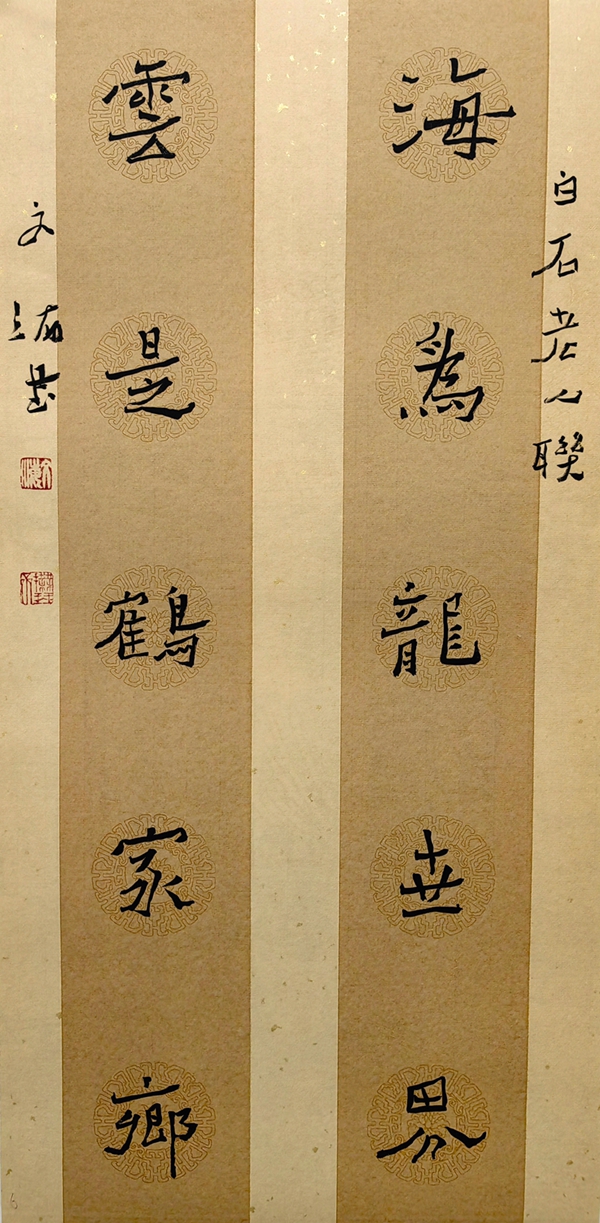 白石老人聯
海為龍世界
雲是鶴家鄉
文